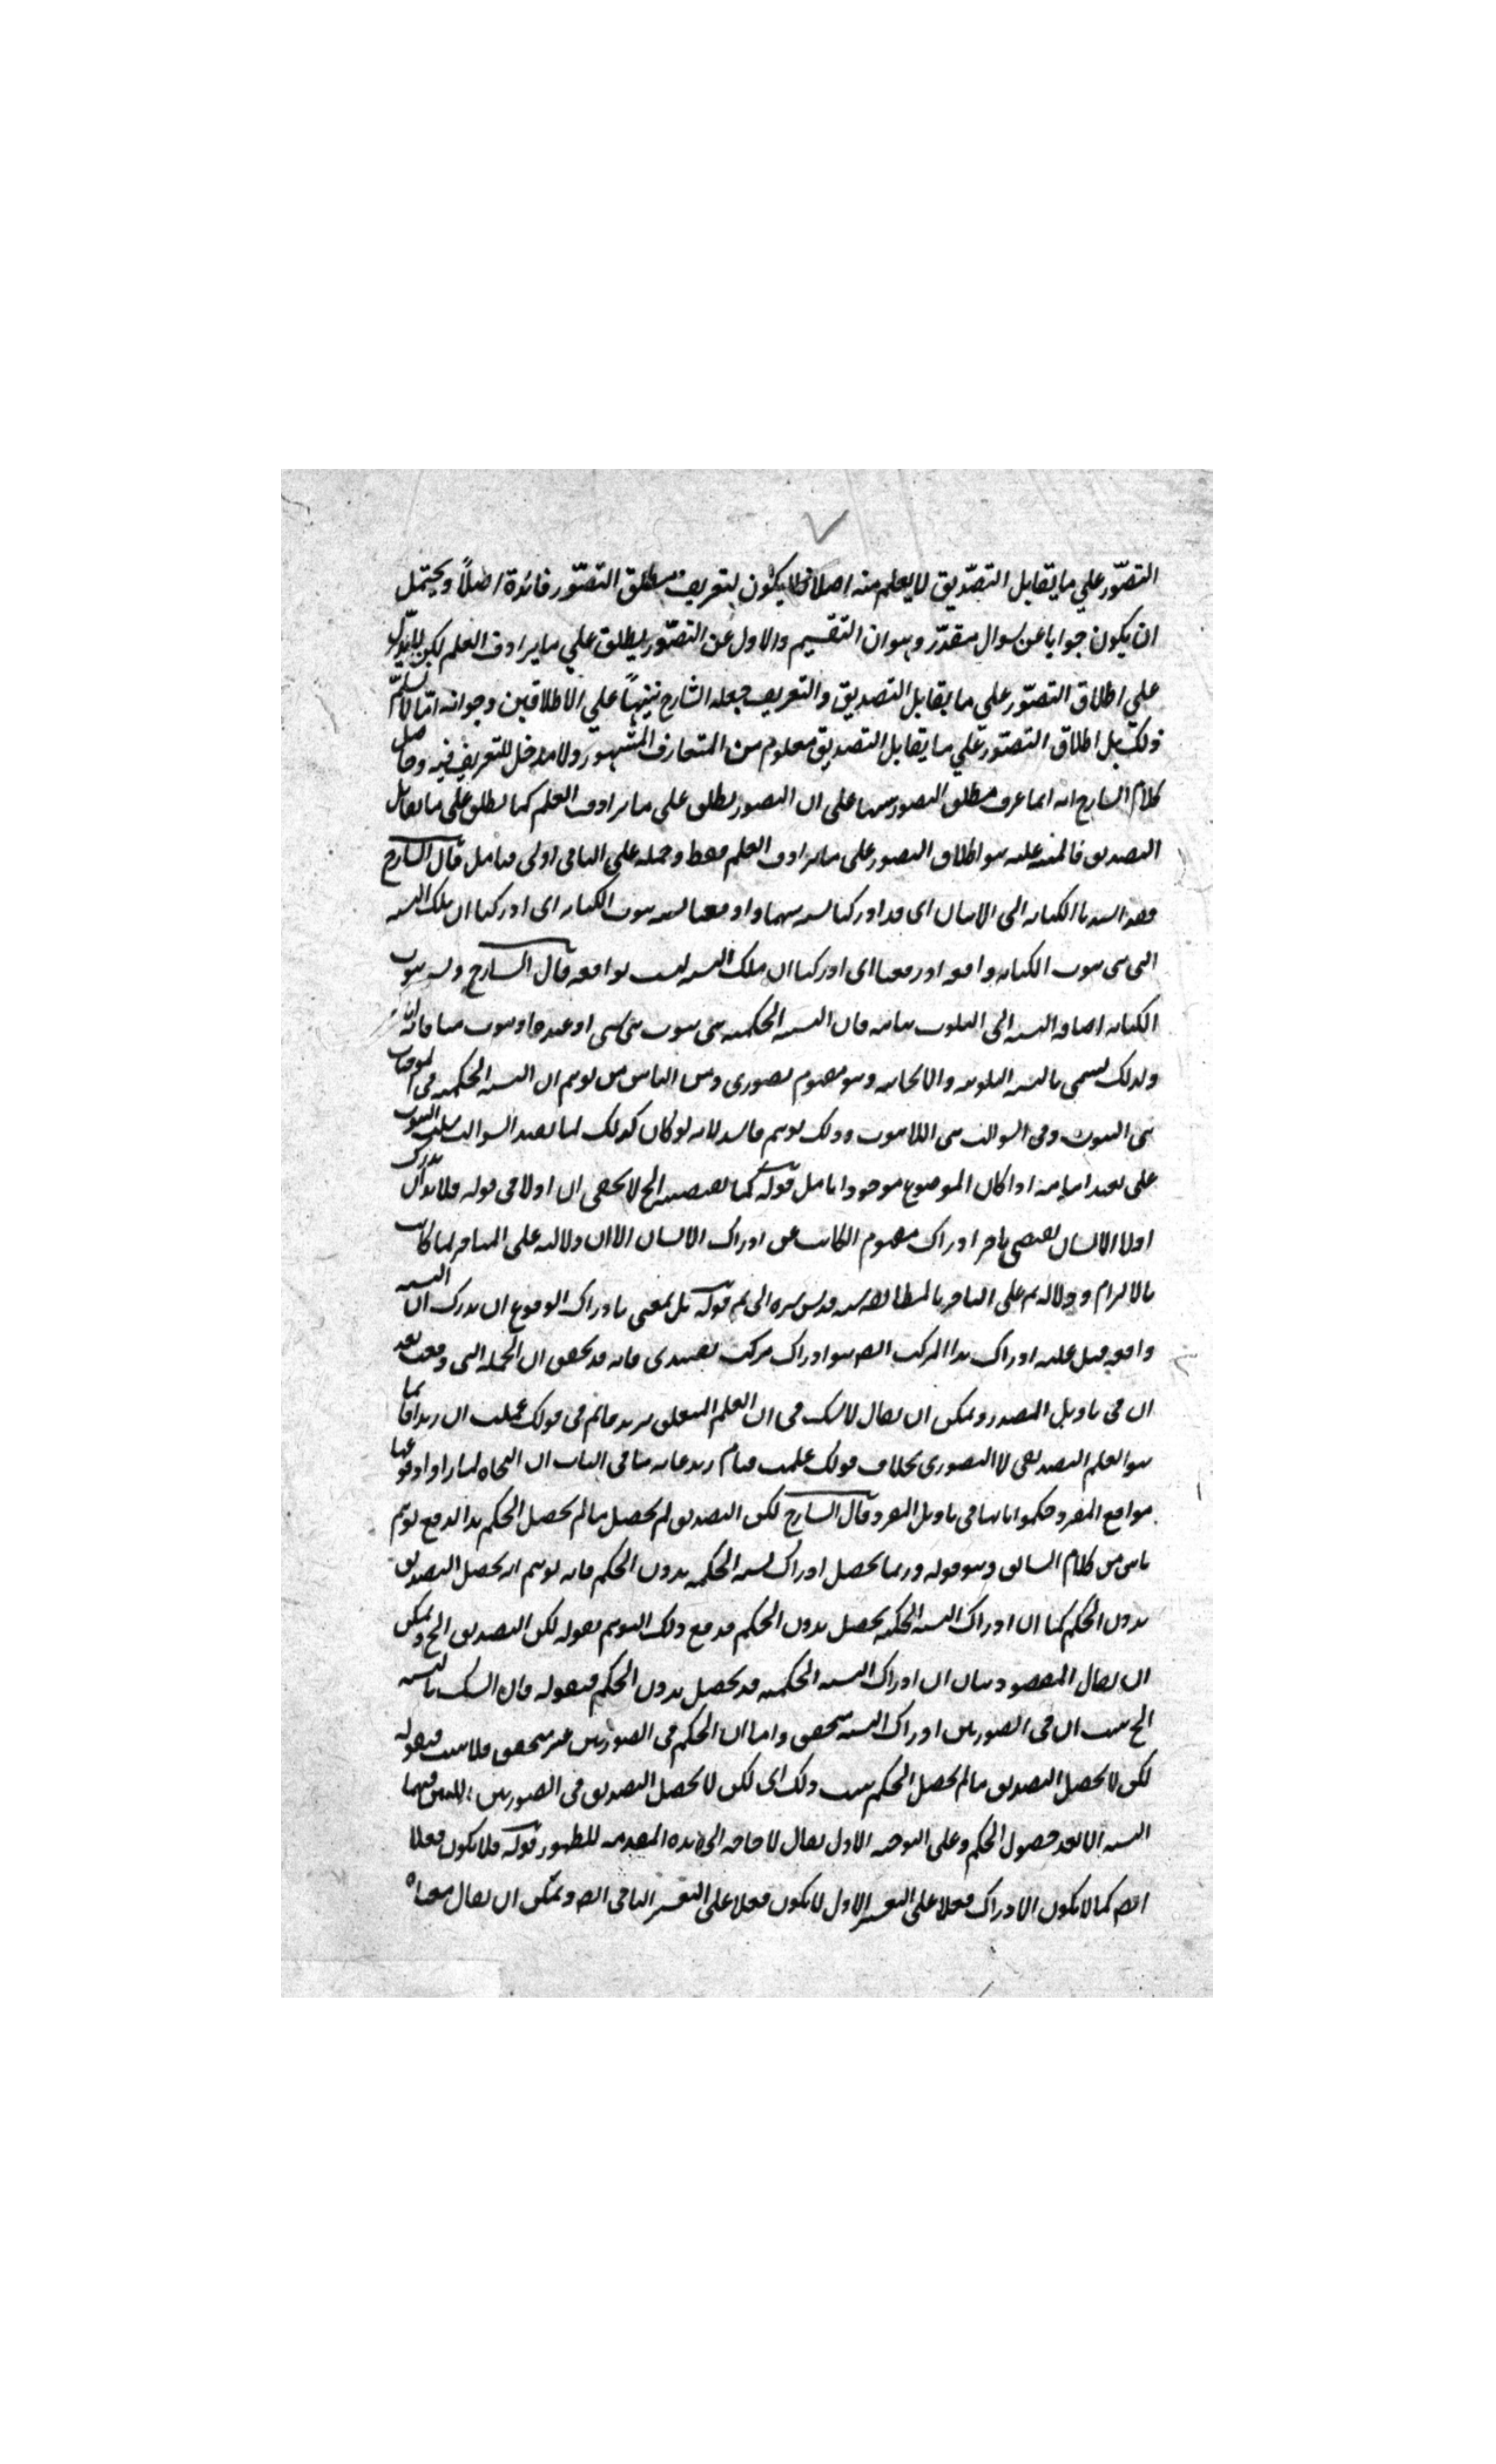 التصوّر علي ما يقابل التصّديق لا يعلم منه اصلا فلا يكون لتعريف مطلق التصّور فائدة اصلاً ويحتمل
ان يكون جوابا عن سوال مقدّر وهو ان التقسيم والاول عن التصّور يطلق علي ما يرادف العلم لكن
علي اطلاق التصّور علي ما يقابل التصديق والتعريف جعله الشارح تنبيهاً علي الاطلاقين وجوابه انّا لا نسلّم
ذلك بل اطلاق التصّور علي ما يقابل التصديق معلوم من المتعارف المشهور ولا مدخل للتعريف فيه وحاصل
كلام الشارح انه انما عرف مطلق التصور تنبيها على ان التصور يطلق على ما يرادف العلم كما يطلق على ما يقابل
التصديق فالمنبه عليه هو اطلاق التصور على ما يرادف العلم فقط وحمله على الثاني اولى فتامل قال الشارح
الكتابة الى الانسان اى قد ادركنا نسبه ثبوت الكتابه اى ادركنا ان تلك النسبه
التى هى ثبوت الكتابه واقعه او رفعنا اى ادركنا ان تلك النسبه ليست بواقعه قال الشارح ونسبه ثبوت
الكتابه اضافه النسبه الى الثبوت بيانيه فان النسبه الحكميه هى ثبوت شى لشى او عنده او ثبوت منافاته
ولذلك يسمى بالنسبه الثبوتيه والايجابيه وهو مفهوم تصورى ومن الناس من توهم ان النسبه الحكميه فى الموجبات
هى الثبوت وفى السوالب هى اللاثبوت وذلك توهم فاسد لانه لو كان كذلك لما تصد السوالب سلب الثبوت
على اذا كان الموضوع موجودا تامل قوله كما الخ لا يخفى ان اولا فى قوله فلا بد ان يدرك
اولا الانسان يقتضى تاخر ادراك مفهوم الكاتب عن ادراك الانسان الا ان دلالته على التاخر لما كانت
بالالتزام ودلاله ثم على التاخر بالمطابقه قدس سره الى ثم قوله بل بمعنى بادراك الوقوع ان يدرك ان النسبه
واقعه قيل عليه ادراك هذا المركب ايضا هو ادراك مركب تقييدى فانه قد تحقق ان الجمله التى وقعت بعد
ان فى تاويل المصدر ويمكن ان يقال لا شك فى ان العلم المتعلق بزيد قائم فى قولك علمت ان زيدا قائما
هو العلم التصديقى لا التصورى بخلاف قولك علمت قيام زيد غايه ما فى الباب ان النحاه لما راوا وقوعها
مواقع المفرد حكموا بانها فى تاويل المفرد قال الشارح لكن التصديق لم يحصل ما لم يحصل الحكم هذا لدفع توهم
ناش من كلام السابق وهو قوله وربما يحصل ادراك النسبه الحكميه بدون الحكم فانه توهم انه يحصل التصديق
بدون الحكم كما ان ادراك النسبه الحكميه يحصل بدون الحكم فدفع ذلك التوهم بقوله لكن التصديق الخ ويمكن
ان يقال المقصود بيان ان ادراك النسبه الحكميه قد يحصل بدون الحكم فبقوله فان الشك بالنسبه
الخ ثبت ان فى الصورتين ادراك النسبه متحقق واما ان الحكم فى الصورتين غير متحقق فلا ثبت فبقوله
لكن لا يحصل التصديق ما لم يحصل الحكم ثبت ذلك اى لكن لا يحصل التصديق فى الصورتين
النسبه الا بعد حصول الحكم وعلى التوجيه الاول يقال لا حاجه الى هذه المقدمه للظهور قوله فلا يكون فعلا
ايضا كما لا يكون الادراك فعلا على التفسير الاول لا يكون فعلا على التفسير الثانى ايضا ويمكن ان يقال معناه